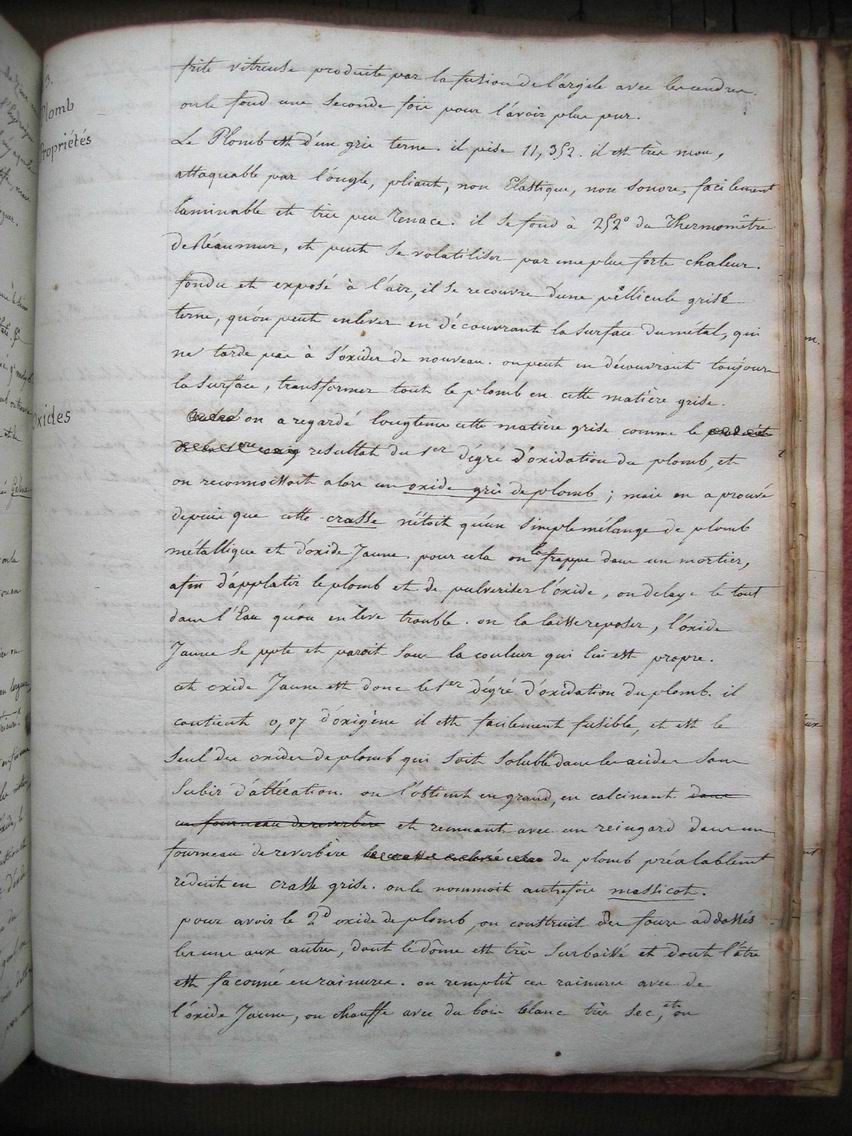 3.
Plomb
Propriétés
fritte vitreuse produite par la fusion de l'argile avec les cendres.
on le fond une seconde fois pour l'avoir plus pur.
Le Plomb est d'un gris terne. il pèse 11,352. il est très mou,
attaquable par l'ongle, pliant, non Elastique, non sonore, facilement
laminable et très peu tenace. il se fond à 252° du Thermomêtre
de Réaumur, et peut se volatiliser par une plus forte chaleur.
fondu et exposé à l'air, il se recouvre d'une pellicule grise
terne, qu'on peut enlever en découvrant la surface du métal, qui
ne tarde pas à s'oxider de nouveau. on peut en découvrant toujours
la surface, transformer tout le plomb en cette matière grise.
Oxides
on a regardé longtems cette matière grise comme le
resultat du 1er dégré d'oxidation du plomb, et
on reconnoissoit alors un oxide gris de plomb ; mais on a prouvé
depuis que cette crasse n'étoit qu'un simple mélange de plomb
métallique et d'oxide Jaune. pour cela on la frappe dans un mortier,
afin d'applatir le plomb et de pulveriser l'oxide, on delaye le tout
dans l'Eau qu'on enlève trouble. on la laisse reposer, l'oxide
Jaune se ppte et paroit sous la couleur qui lui est propre.
cet oxide Jaune est donc le 1er dégré d'oxidation du plomb. il
contient 0,07 d'oxigène il est facilement fusible, et est le
seul des oxides de plomb qui soit soluble dans les acides sans
subir d'altération. on l'obtient en grand, en calcinant dans
un fourneau de reverbère et remuant avec un reingard dans un
fourneau de reverbère du plomb préalablement
réduit en crasse grise. on le nommoit autrefois massicot.
pour avoir le 2d oxide de plomb, on construit des fours addossés
les uns aux autres, dont le dôme est très surbaissé et dont l'âtre
est façonné en rainures. on remplit ces rainures avec de
l'oxide Jaune, on chauffe avec du bois blanc très sec, et on